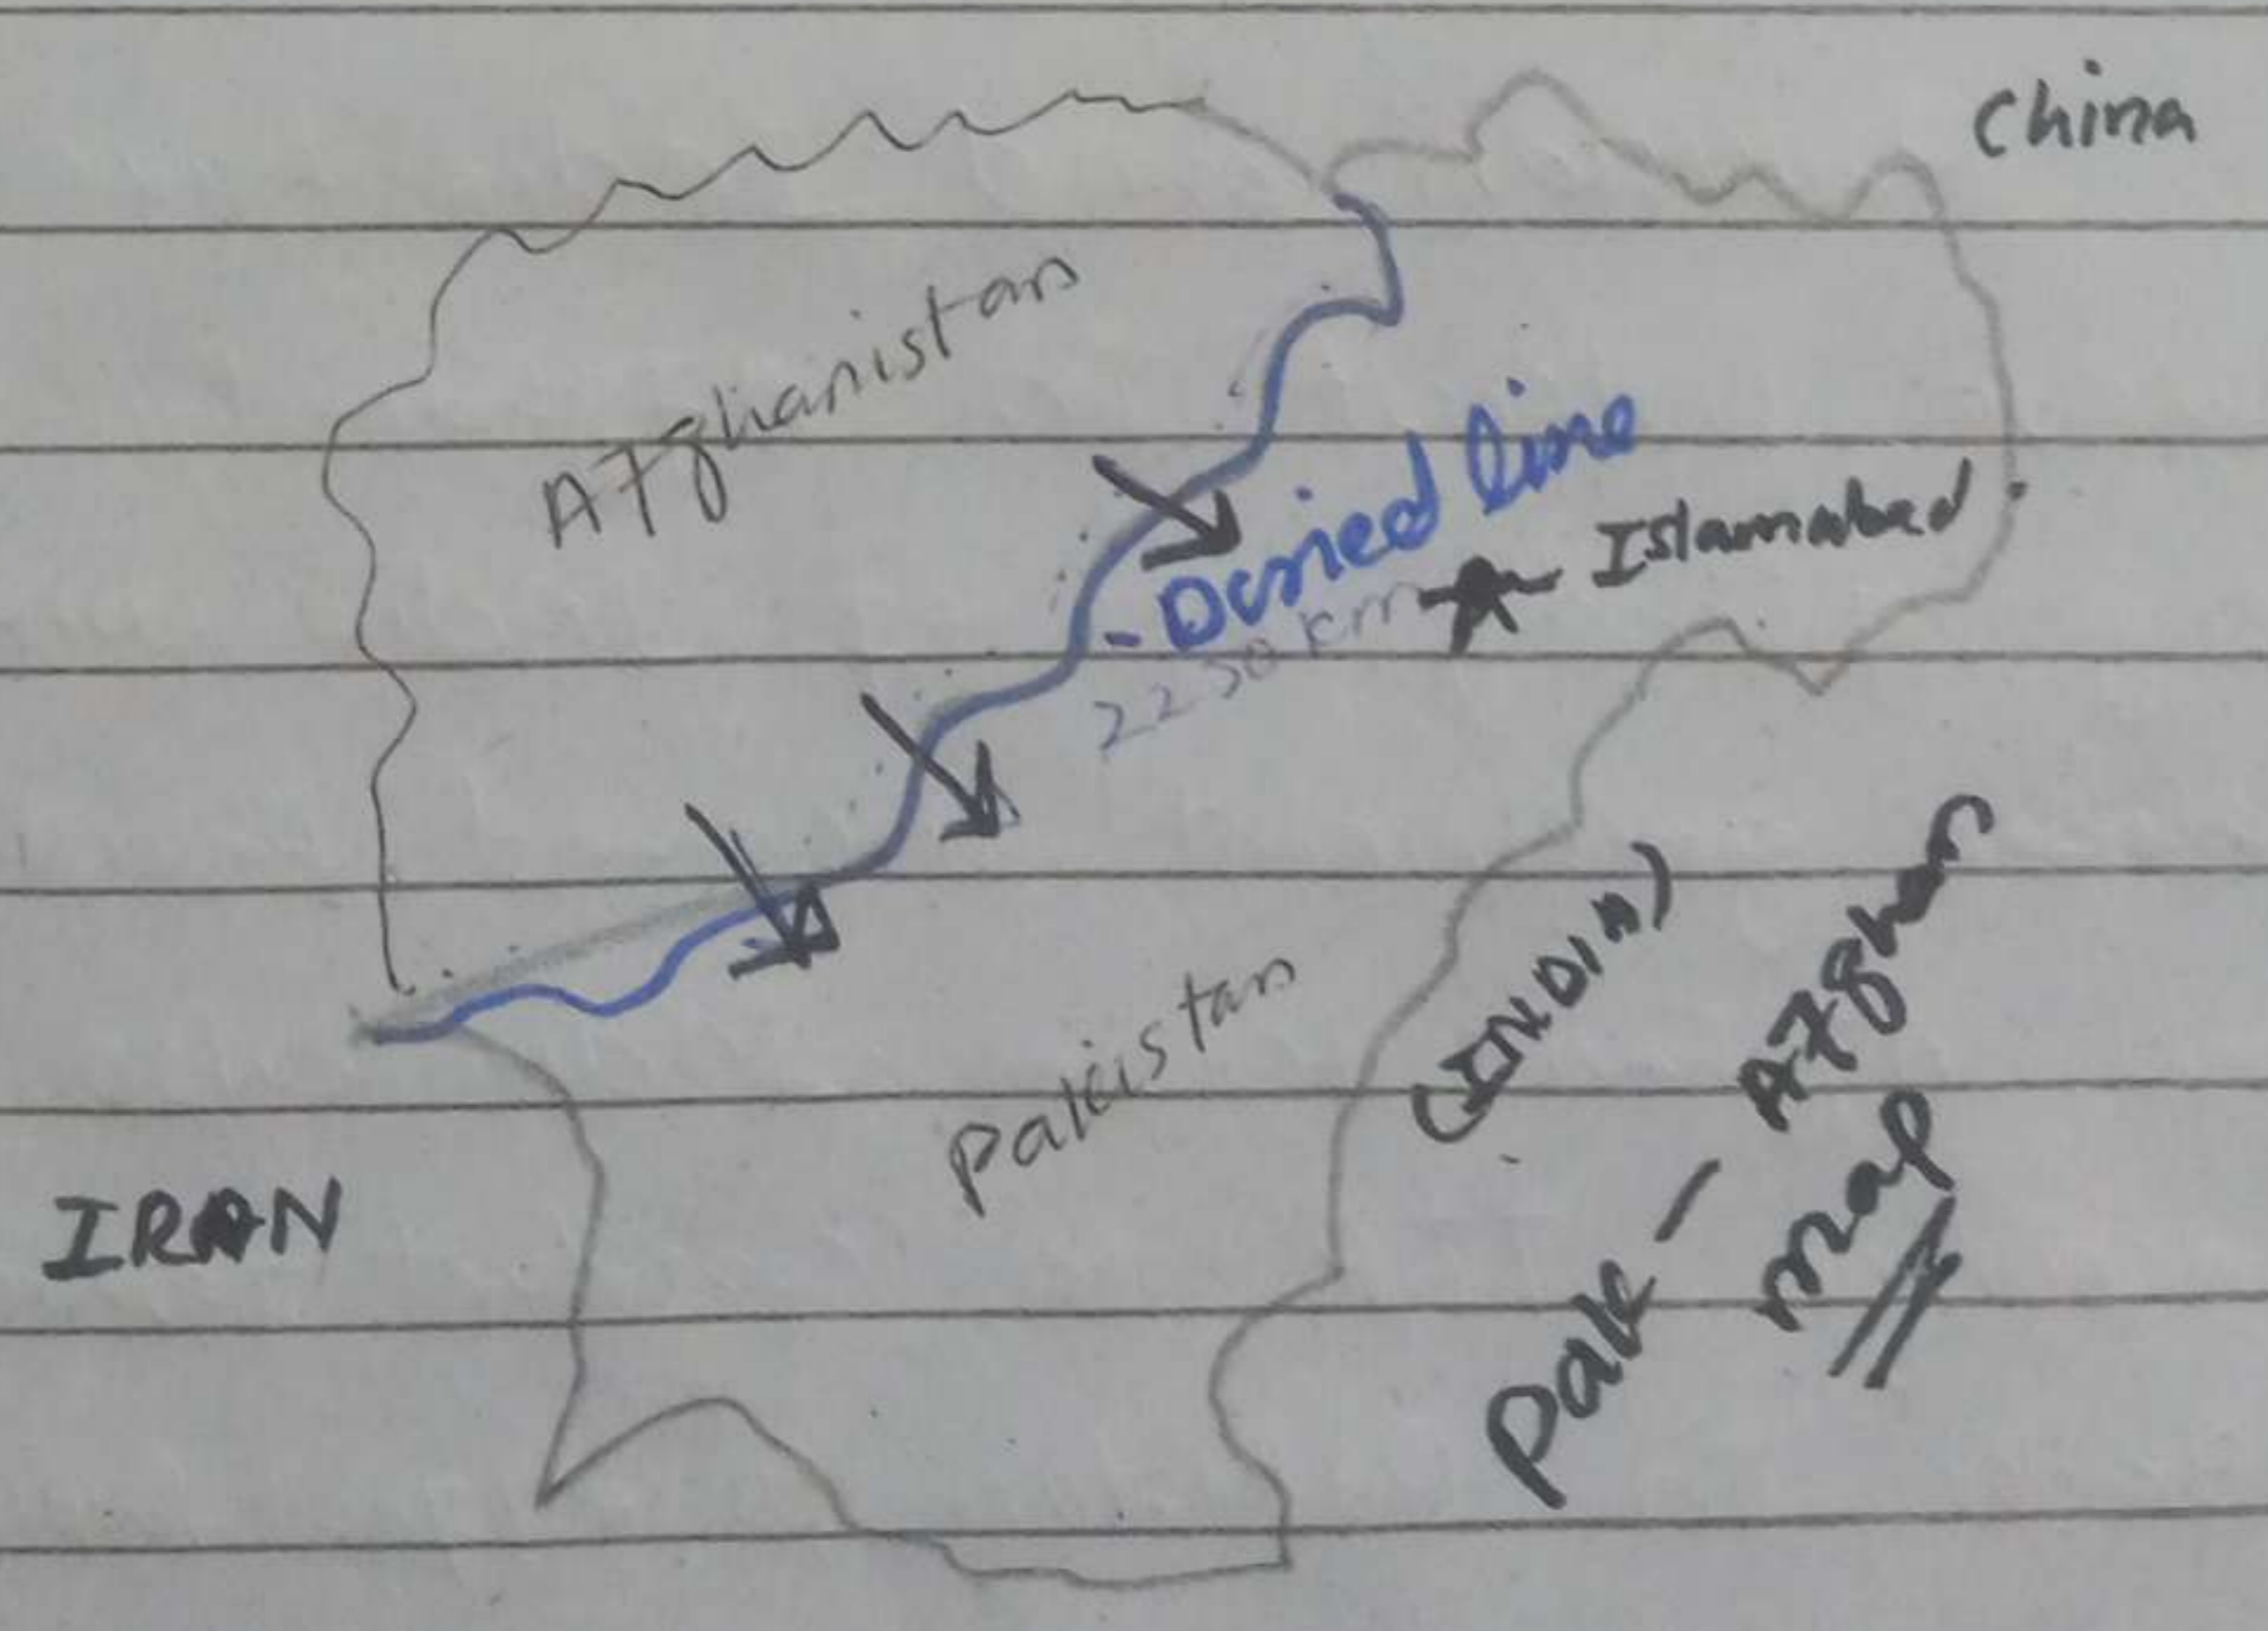 China
Afghanistan
- Duried line
2250 km
Islamabad
(INDIA)
Pakistan
IRAN
Pak - Afghan
map